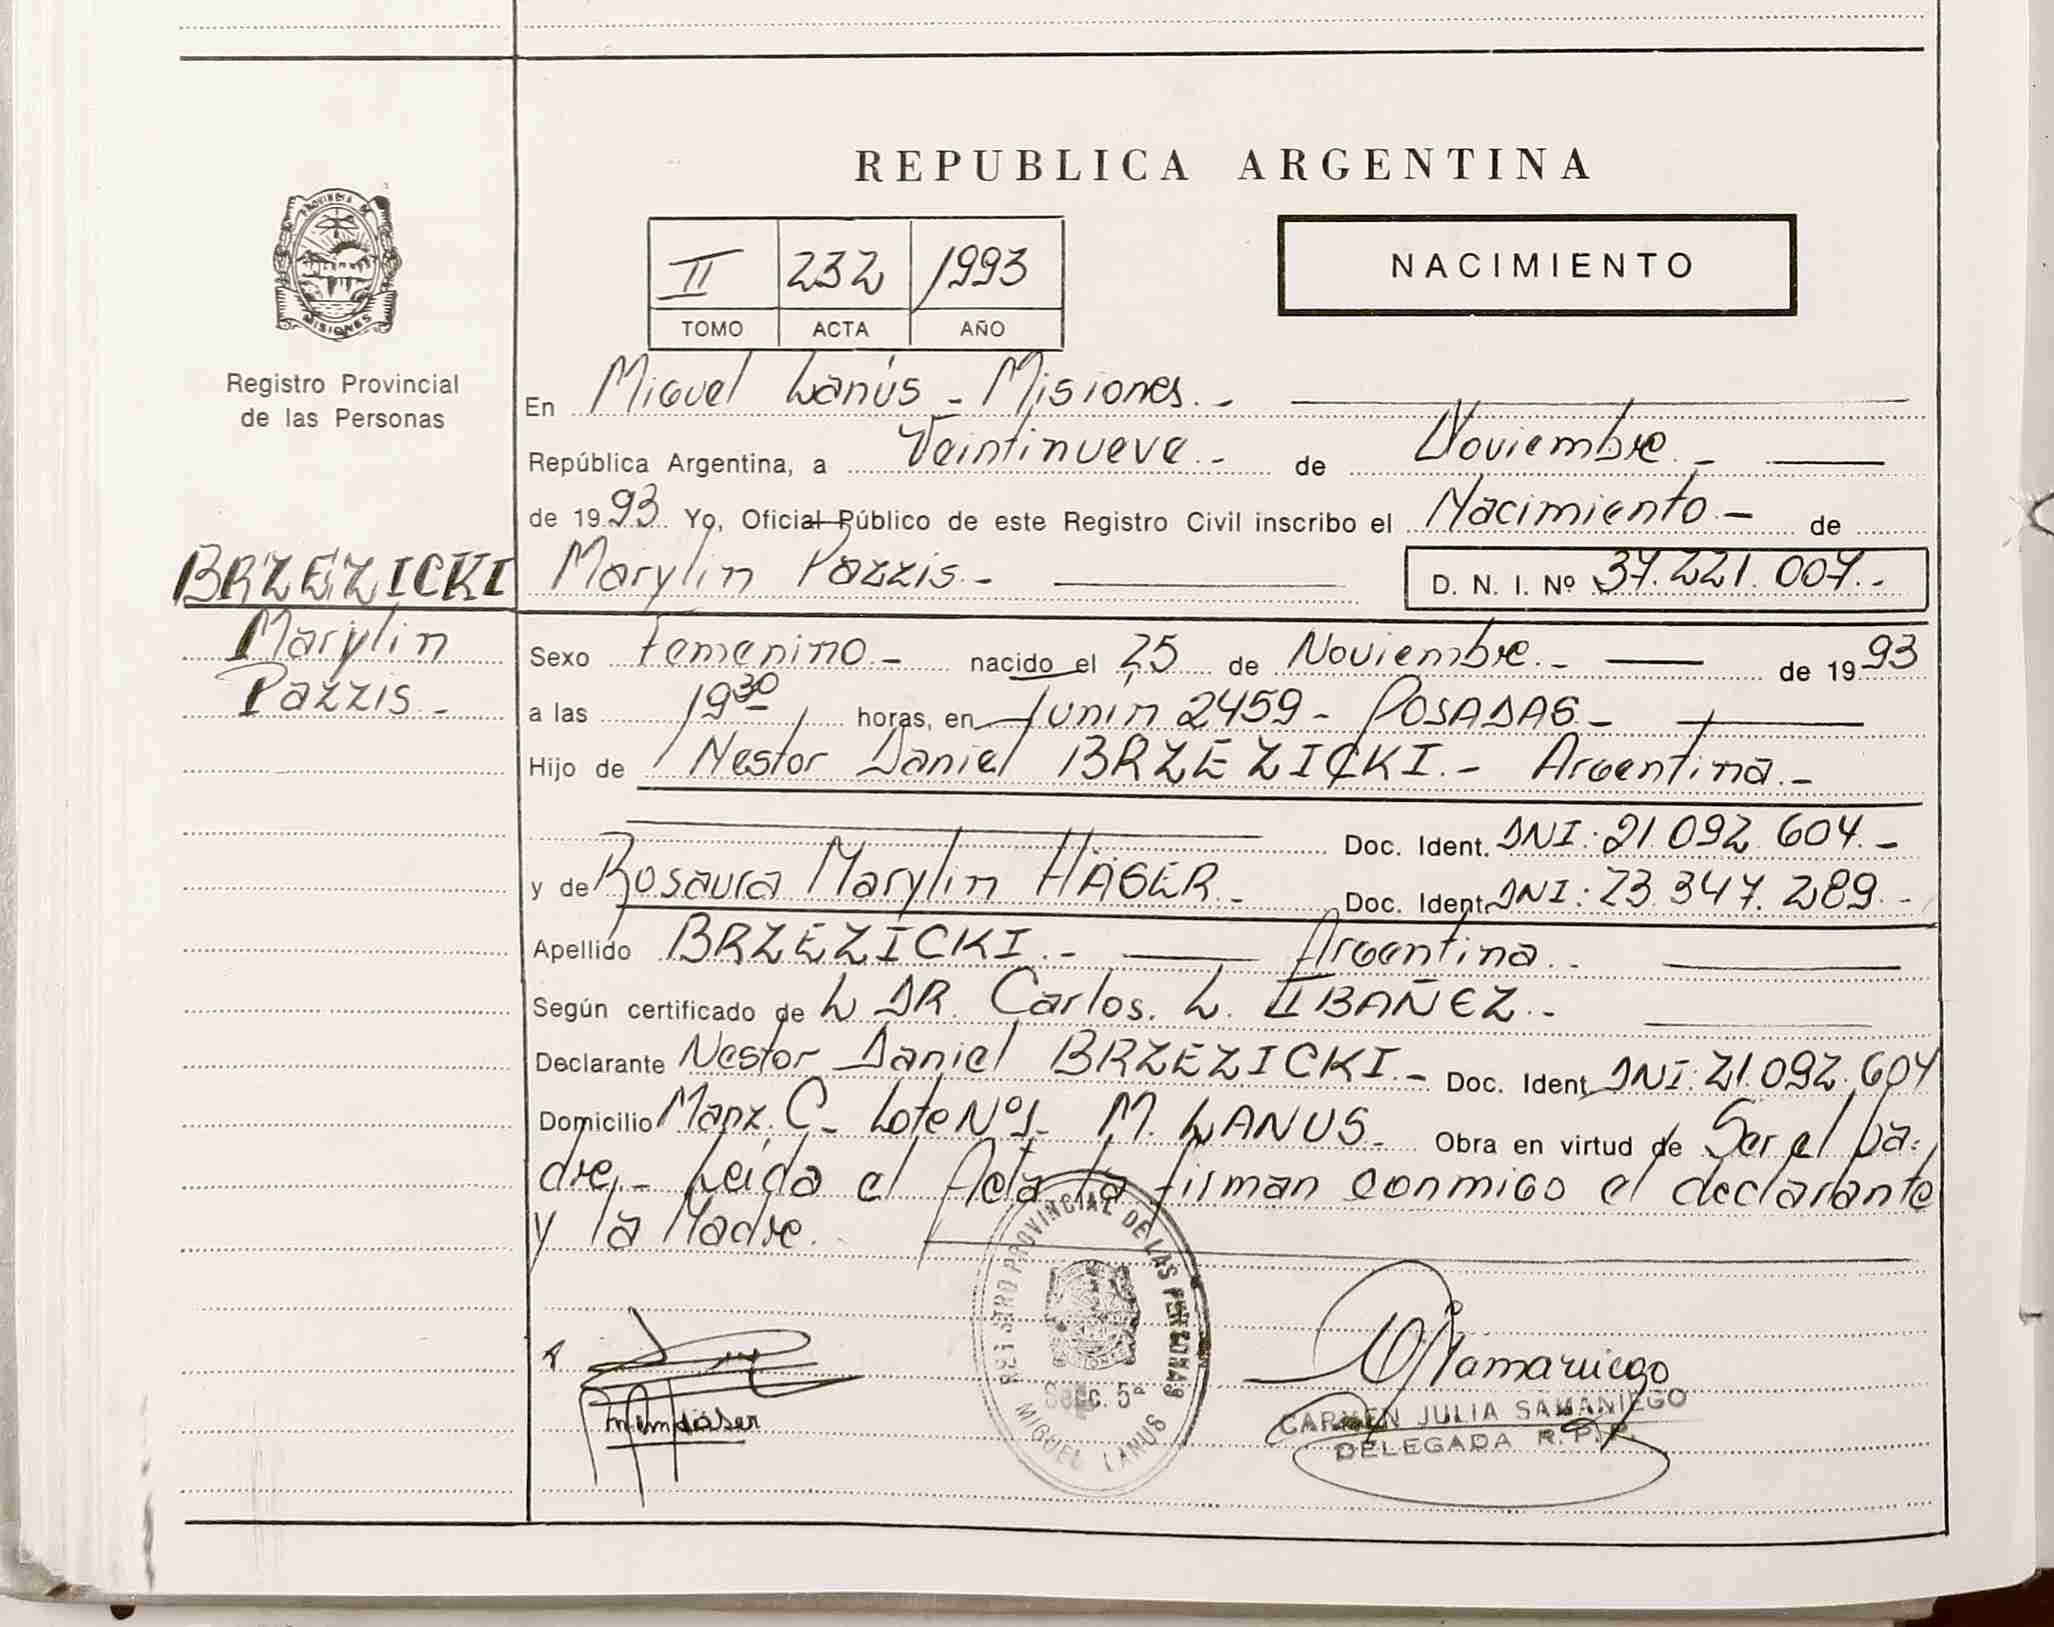 REPUBLICA ARGENTINA
PROVINCIA DE
MISIONES
Registro Provincial
de las Personas
II 232 1993
TOMO ACTA AÑO
NACIMIENTO
En Miguel Lanús - Misiones.-
República Argentina, a Veintinueve.- de Noviembre.-
de 1993 Yo, Oficial Público de este Registro Civil inscribo el Nacimiento.- de
BRZEZICKI
Marylin
Pazzis.-
Marylin Pazzis.- D. N. I. Nº 37.221.007.-
Sexo Femenino.- nacido el 25 de Noviembre.- de 1993
a las 19 30 horas, en Junín 2459- POSADAS-
Hijo de Nestor Daniel BRZEZICKI.- Argentina.-
Doc. Ident. DNI: 21.092.604.-
y de Rosaura Marylin HÄGER.- Doc. Ident. DNI: 23.347.289.-
Apellido BRZEZICKI.- Argentina.-
Según certificado de L DR. Carlos. L. IBAÑEZ.-
Declarante Nestor Daniel BRZEZICKI.- Doc. Ident. DNI: 21.092.604
Domicilio Manz. C- Lote Nº1- M. LANUS- Obra en virtud de Ser el pa-
dre,- Leida el Acta la firman conmigo el declarante
y la Madre.
REGISTRO PROVINCIAL DE LAS PERSONAS
SECC. 5ª
MIGUEL LANUS
CARMEN JULIA SAMANIEGO
DELEGADA R.P.P.